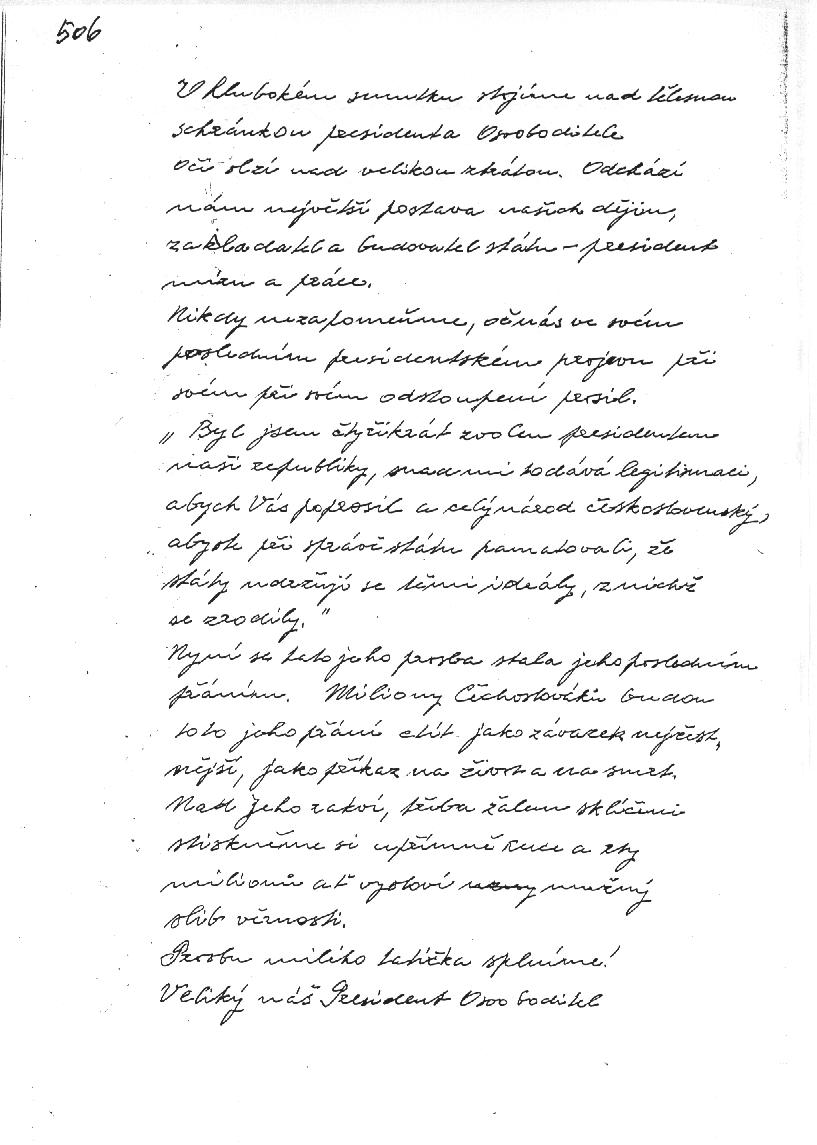 506
V hlubokém smutku stojíme nad tělesnou
schránkou presidenta Osvoboditele
Oči slzí nad velikou ztrátou. Odchází
nám největší postava našich dějin,
zakladatel a budovatel státu – president
míru a práce.
Nikdy nezapomeňme, oč nás ve svém
posledním presidentském projevu při
svém při svém odstoupení prosil.
„ Byl jsem čtyřikrát zvolen presidentem
naší republiky, snad mi to dává legitimaci,
abych Vás poprosil a celý národ československý,
abyste při správě státu pamatovali, že
státy udržují se těmi ideály, z nichž
se zrodily."
Nyní se tato jeho prosba stala jeho posledním
přáním. Miliony Čechoslováků budou
toto jeho přání ctít jako závazek nejčest,
nější, jako příkaz na život a na smrt.
Nad Jeho rakví, třeba žalem sklíčeni
stiskněme si upřímně ruce a rty
milionů ať vysloví mužný
slib věrnosti.
Prosbu milého tatíčka splníme!
Veliký náš President Osvoboditel